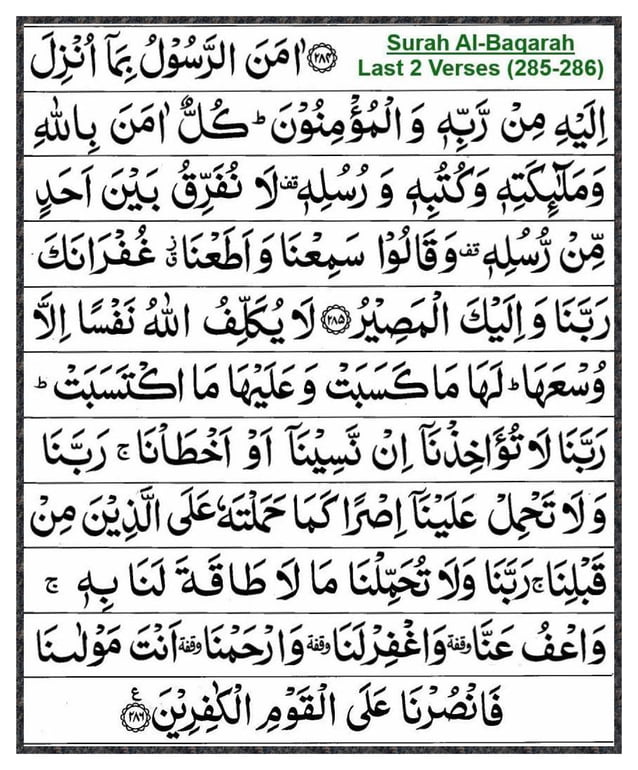 Surah Al-Baqarah
Last 2 Verses (285-286)
﴿۲۸۴﴾ اٰمَنَ الرَّسُوْلُ بِمَاۤ اُنْزِلَ
اِلَیْهِ مِنْ رَّبِّهٖ وَ الْمُؤْمِنُوْنَ ؕ كُلٌّ اٰمَنَ بِاللّٰهِ
وَ مَلٰٓىِٕكَتِهٖ وَ كُتُبِهٖ وَ رُسُلِهٖ قف لَا نُفَرِّقُ بَیْنَ اَحَدٍ
مِّنْ رُّسُلِهٖ قف وَ قَالُوْا سَمِعْنَا وَ اَطَعْنَا ز غُفْرَانَكَ
رَبَّنَا وَ اِلَیْكَ الْمَصِیْرُ ﴿۲۸۵﴾ لَا یُكَلِّفُ اللّٰهُ نَفْسًا اِلَّا
وُسْعَهَا ؕ لَهَا مَا كَسَبَتْ وَ عَلَیْهَا مَا اكْتَسَبَتْ ؕ
رَبَّنَا لَا تُؤَاخِذْنَاۤ اِنْ نَّسِیْنَاۤ اَوْ اَخْطَاْنَا ۚ رَبَّنَا
وَ لَا تَحْمِلْ عَلَیْنَاۤ اِصْرًا كَمَا حَمَلْتَهٗ عَلَى الَّذِیْنَ مِنْ
قَبْلِنَا ۚ رَبَّنَا وَ لَا تُحَمِّلْنَا مَا لَا طَاقَةَ لَنَا بِهٖ ۚ
وَ اعْفُ عَنَّا وقفة وَ اغْفِرْ لَنَا وقفة وَ ارْحَمْنَا وقفة اَنْتَ مَوْلٰىنَا
فَانْصُرْنَا عَلَى الْقَوْمِ الْكٰفِرِیْنَ ﴿۲۸۶﴾ ع